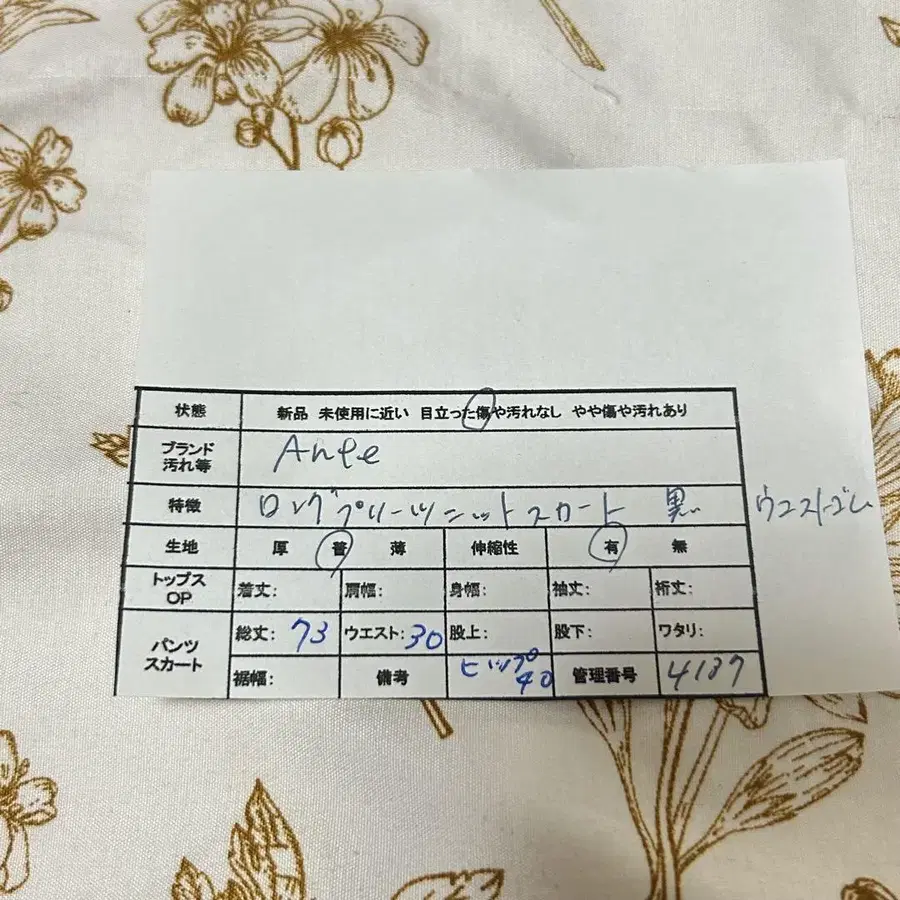 状態 新品 未使用に近い 目立った傷や汚れなし やや傷や汚れあり
ブランド
汚れ等
特徴 ロングプリーツニットスカート 黒 ウエストゴム
生地 厚 普 薄 伸縮性 有 無
トップス
OP 着丈: 肩幅: 身幅: 袖丈: 裄丈:
パンツ
スカート 総丈: 73 ウエスト: 30 股上: 股下: ワタリ:
裾幅: 備考 ヒップ 40 管理番号 4137